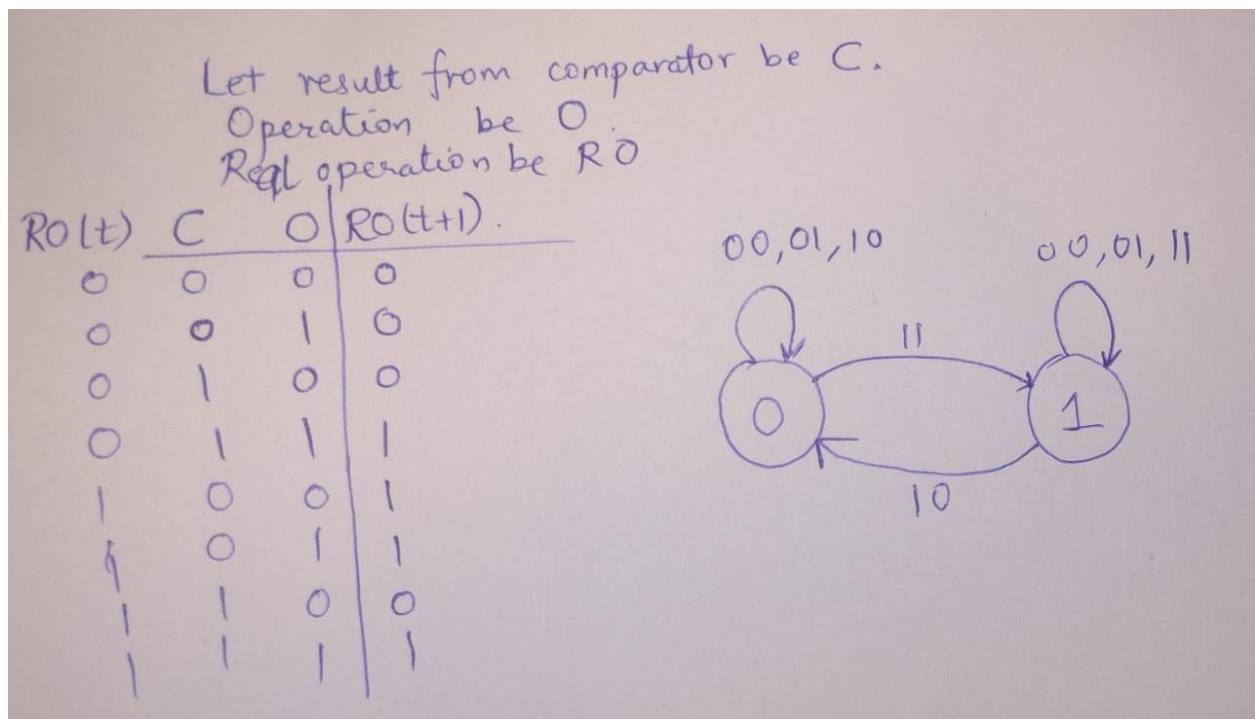 Let result from comparator be C.
Operation be O.
Real operation be RO
RO(t) C O RO(t+1).
0 0 0 0
0 0 1 0
0 1 0 0
0 1 1 1
1 0 0 1
1 0 1 1
1 1 0 0
1 1 1 1
00,01,10
00,01,11
11
0
1
10